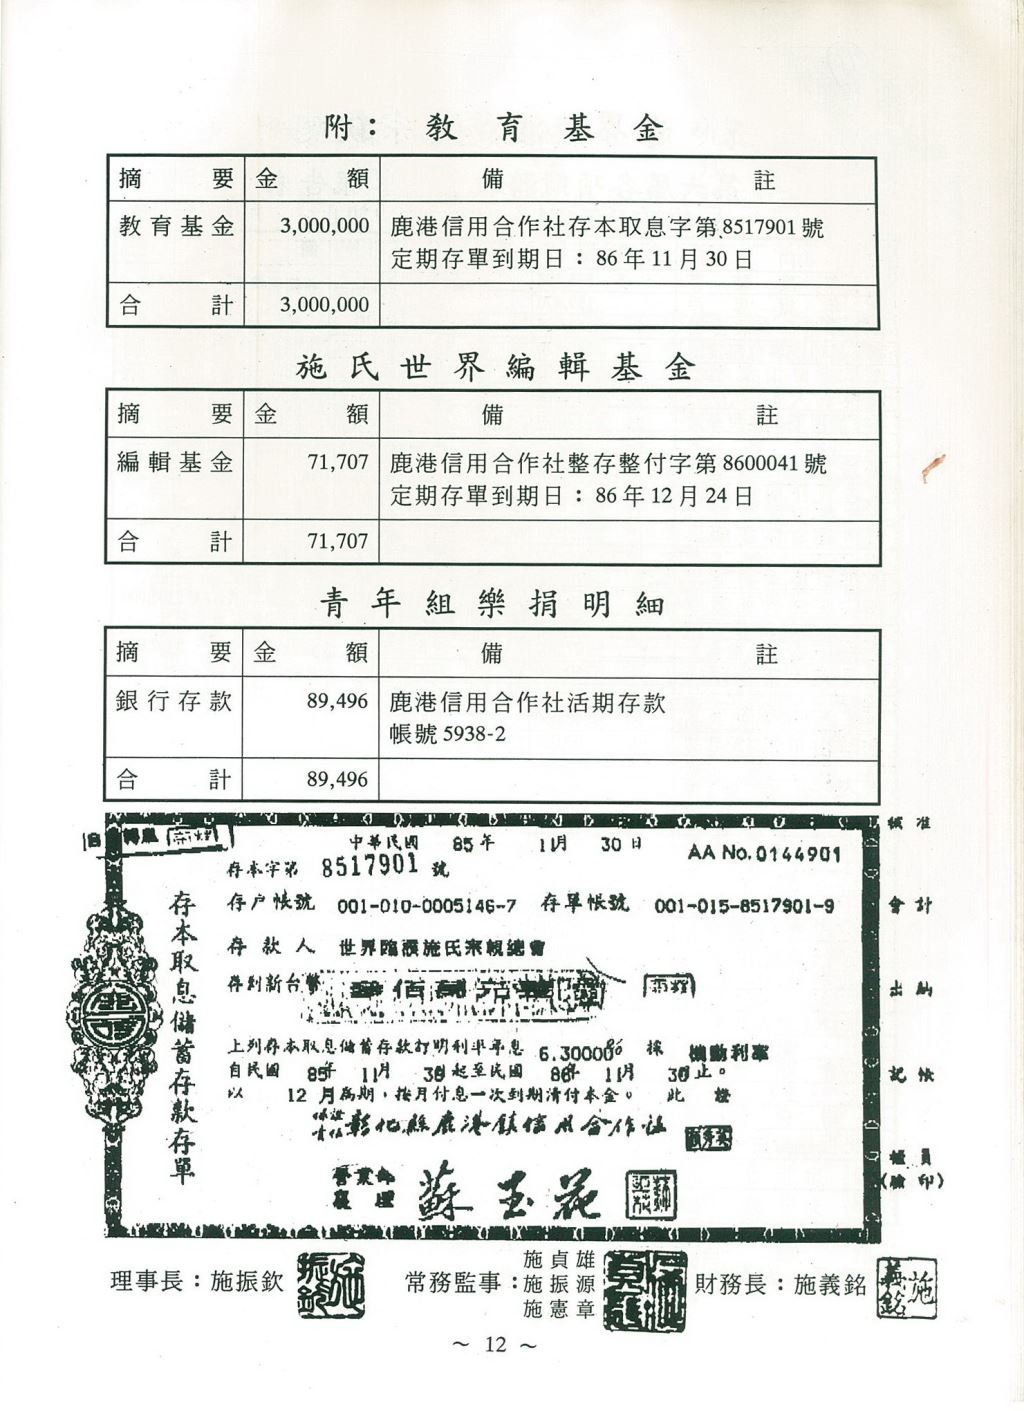 附：教育基金
摘要 金額 備註
教育基金 3,000,000 鹿港信用合作社存本取息字第8517901號
定期存單到期日：86年11月30日
合計 3,000,000
施氏世界編輯基金
摘要 金額 備註
編輯基金 71,707 鹿港信用合作社整存整付字第8600041號
定期存單到期日：86年12月24日
合計 71,707
青年組樂捐明細
摘要 金額 備註
銀行存款 89,496 鹿港信用合作社活期存款
帳號5938-2
合計 89,496
中華民國 85年 11月 30日
AA No.0144901
存本字第 8517901 號
存戶帳號 001-010-0005146-7 存單帳號 001-015-8517901-9
存款人 世界臨濮施氏宗親總會
存本取息儲蓄存款存單
存到新台幣
上列存本取息儲蓄存款訂明利率年息 6.30000% 採 機動利率
自民國 85年 11月 30起至民國 86年 11月 30止。
以 12 月為期，按月付息一次到期清付本金。此證
保證責任彰化縣鹿港鎮信用合作社
營業部
襄理 蘇玉花
核准
會計
出納
記帳
櫃員
(驗印)
理事長：施振欽
常務監事：施貞雄
施振源
施憲章
財務長：施義銘
～ 12 ～